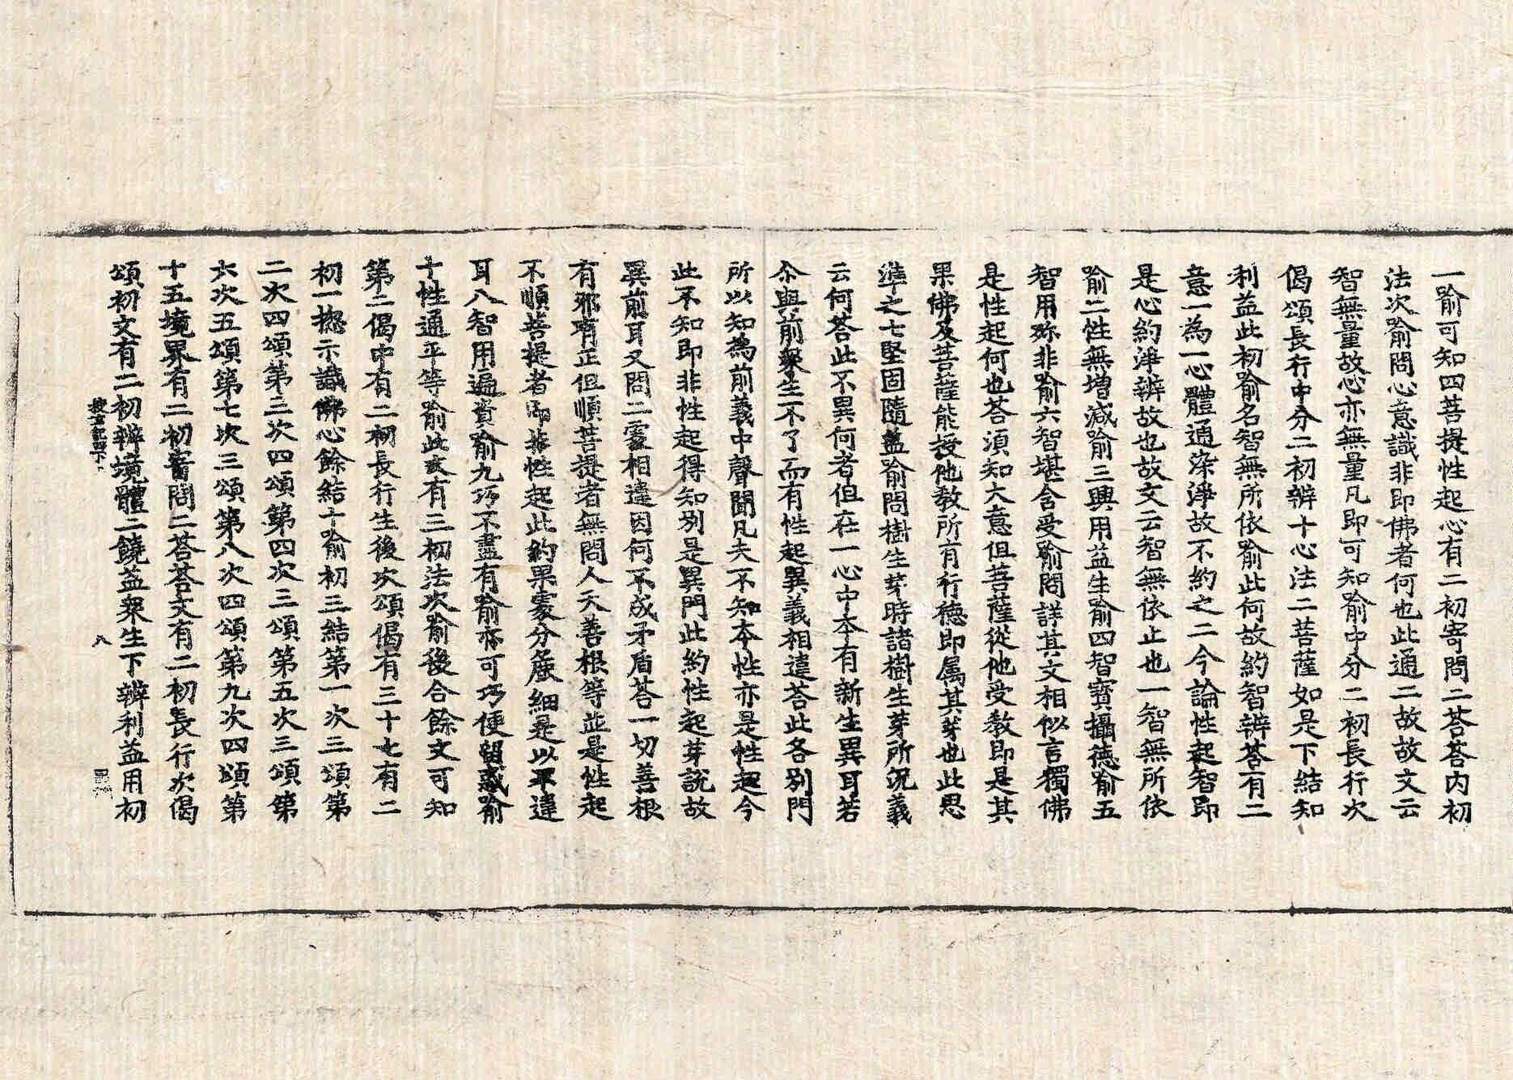 一喻可知四菩提性起心有二初寄問二荅荅内初
法次喻問心意識非即佛者何也此通二故故文云
智無量故心亦無量凡即可知喻中分二初長行次
偈頌長行中分二初辨十心法二菩薩如是下結知
利益此初喻名智無所依喻此何故約智辨荅有二
意一為一心體通染淨故不約之二今論性起智即
是心約淨辨故也故文云智無依止也一智無所依
喻二性無增減喻三與用益生喻四智寶攝德喻五
智用殊非喻六智堪含受喻問詳其文相似言獨佛
是性起何也荅湏知大意但菩薩從他受教即是其
果佛及菩薩能授他教所有行德即属其芽也此思
準之七堅固隨益喻問樹生芽時諸樹生芽所況義
云何荅此不異何者但在一心中本有新生異耳若
尒與前衆生不了而有性起異義相違荅此各别門
所以知為前義中聲聞凡夫不知本性亦是性起今
此不知即非性起得知别是異門此約性起芽說故
異前耳又問二處相違因何不成矛盾荅一切善根
有邪有正但順菩提者無問人天善根等並是性起
不順菩提者即非性起此約果處分麁細是以不違
耳八智用遍資喻九巧不盡有喻亦可巧便留惑喻
十性通平等喻此文有三初法次喻後合餘文可知
第二偈中有二初長行生後次頌偈有三十七有二
初一揔示識佛心餘結十喻初三結第一次三頌第
二次四頌第三次四頌第四次三頌第五次三頌第
六次五頌第七次三頌第八次四頌第九次四頌第
十五境界有二初寄問二荅荅文有二初長行次偈
頌初文有二初辨境體二饒益衆生下辨利益用初
搜玄記四下
八